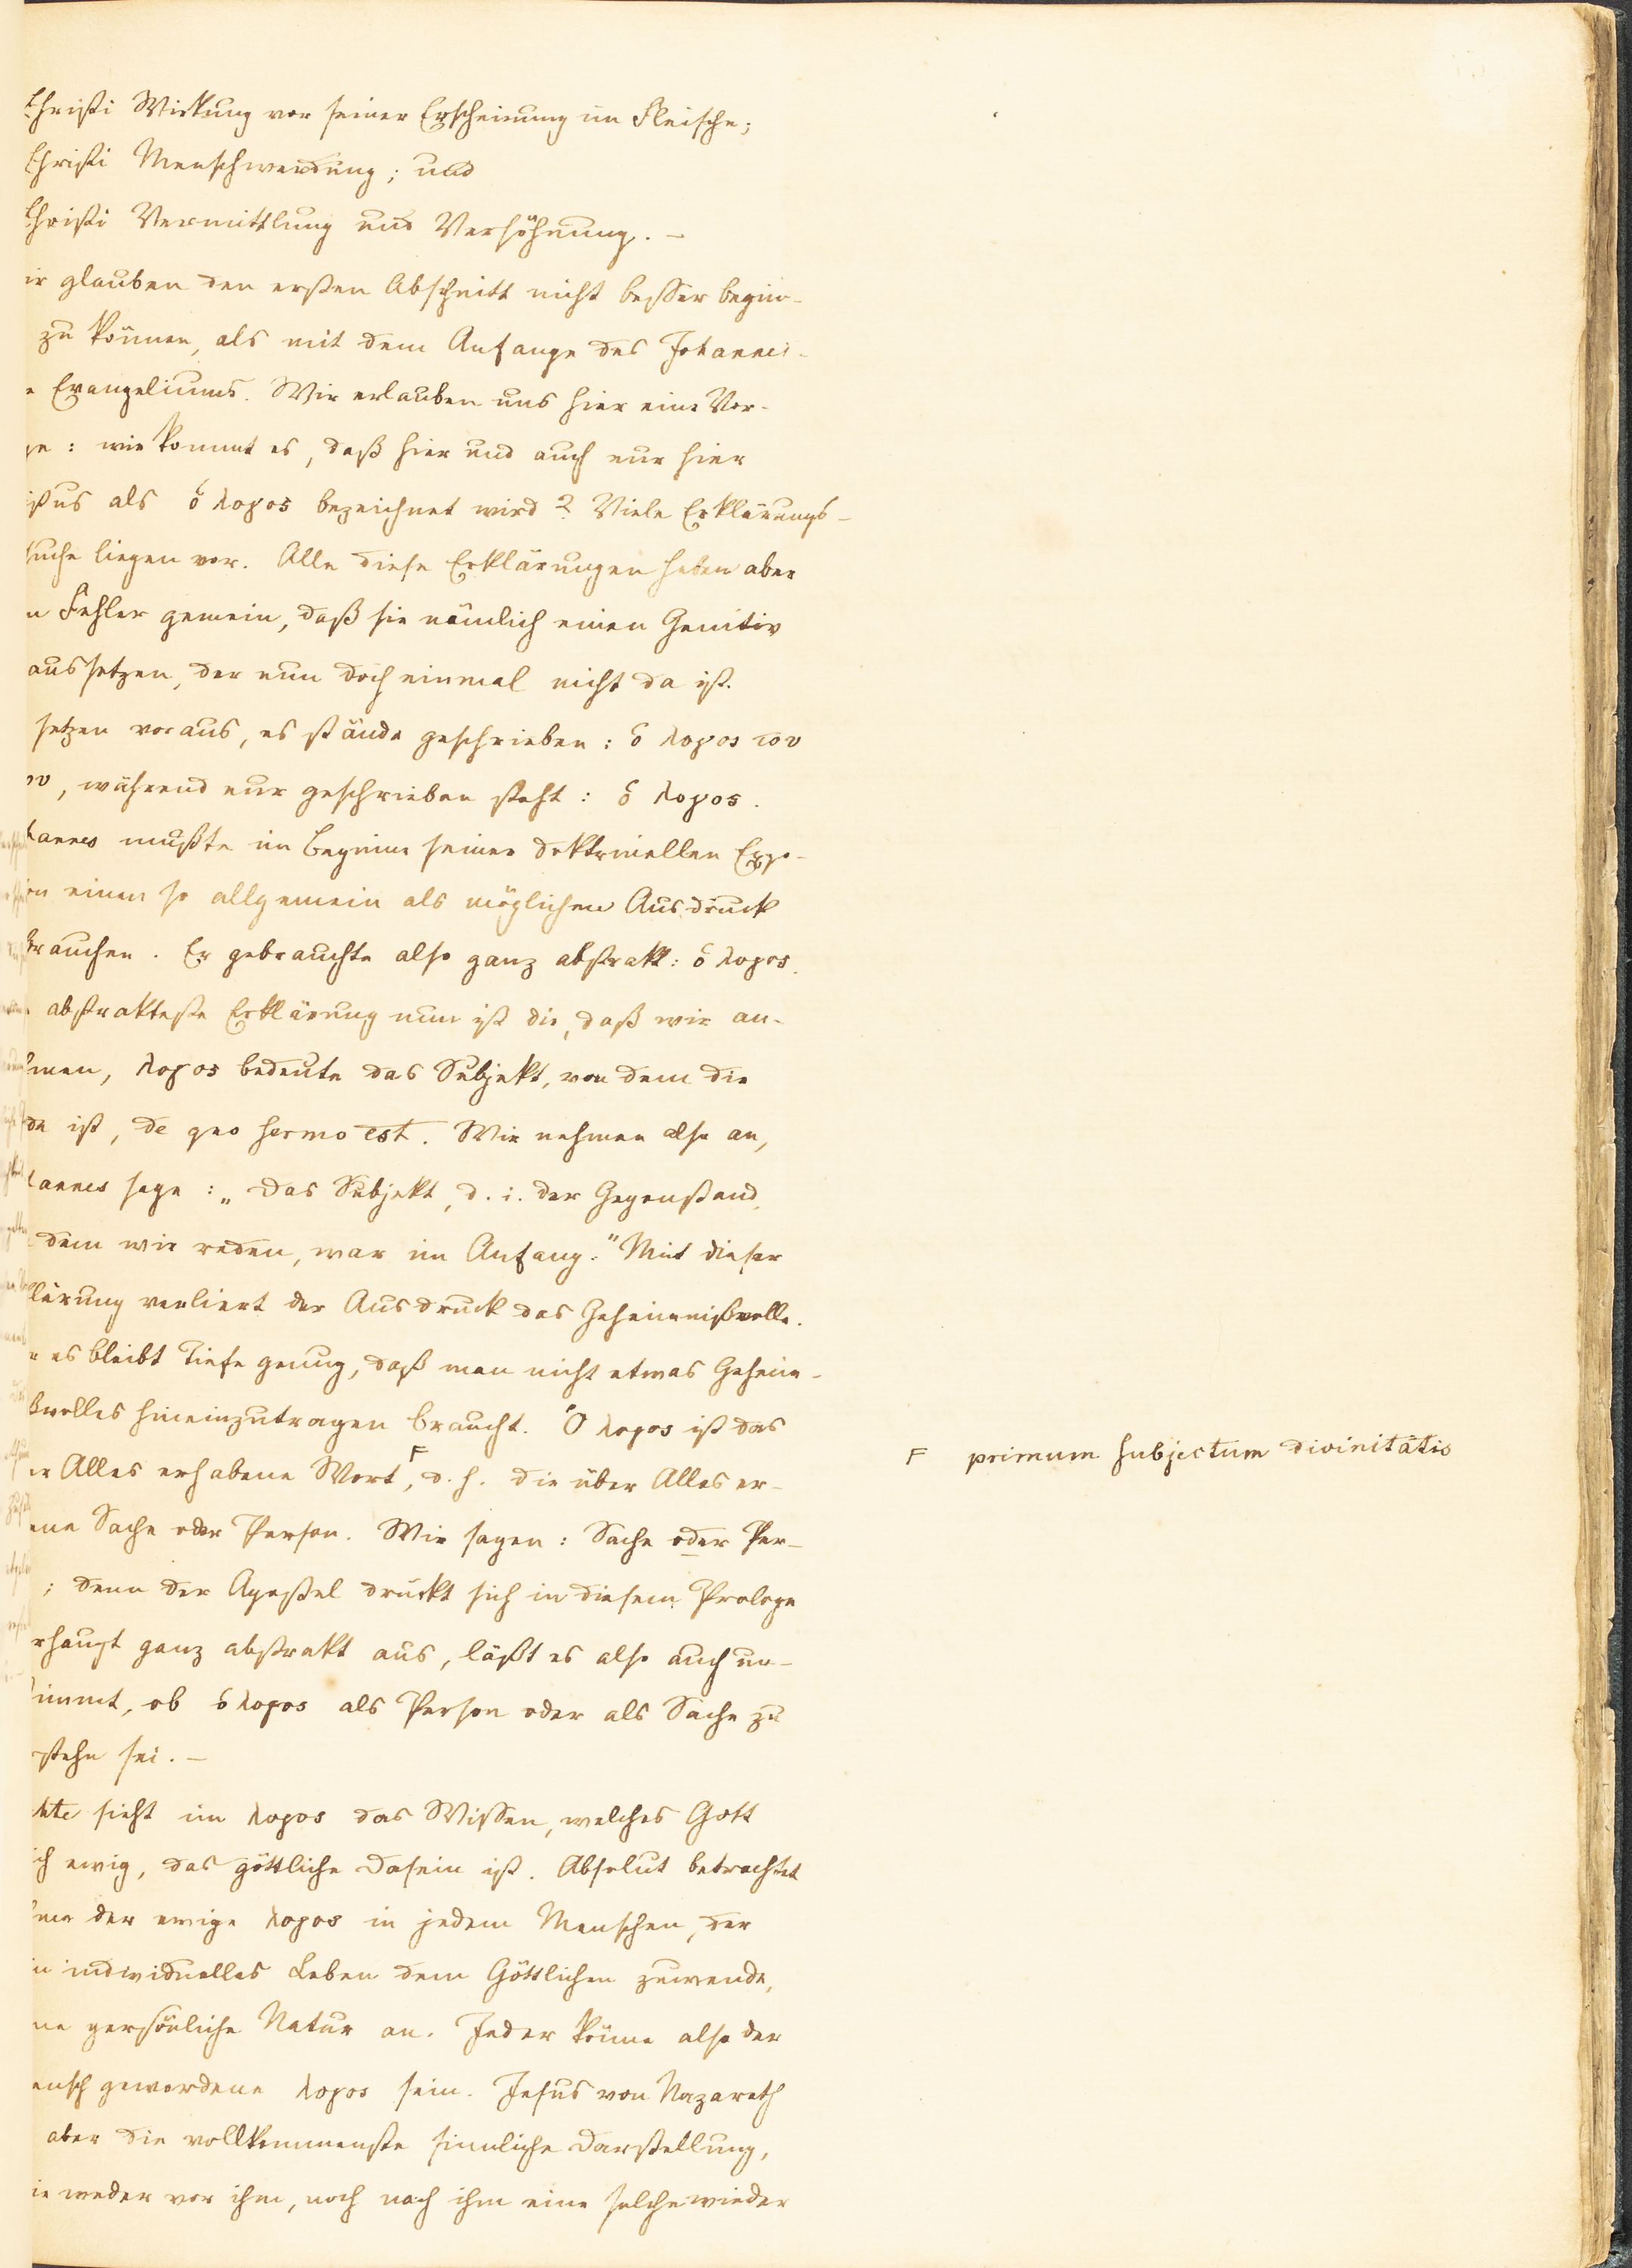 Christi Wirkung vor seiner Erscheinung im Fleische;
Christi Menschwerdung; und
Christi Vermittlung und Versöhnung. –
ir glauben den ersten Abschnitt nicht besser begin-
zu können, als mit dem Anfange des Johannei-
e Evangeliums. Wir erlauben uns hier eine Vor-
ge: wie kommt es, daß hier und auch nur hier
istus als ὁ λογος bezeichnet wird? Viele Erklärungs-
suche liegen vor. Alle diese Erklärungen haben aber
n Fehler gemein, daß sie nämlich einen Genitiv
aussetzen, der nun doch einmal nicht da ist.
setzen voraus, es stände geschrieben: ὁ λογος του
ου, während nur geschrieben steht: ὁ λογος.
hannes mußte im Beginne seiner doktrinellen Expo-
ion einen so allgemein als möglichen Ausdruck
brauchen. Er gebrauchte also ganz abstrakt: ὁ λογος.
abstrakteste Erklärung nun ist die, daß wir an-
hmen, λογος bedeute das Subjekt, von dem die
de ist, de quo sermo est. Wir nehmen also an,
hannes sage: „Das Subjekt, d. i. der Gegenstand,
dem wir reden, war im Anfang." Mit dieser
lärung verliert der Ausdruck das Geheimnißvolle.
r es bleibt Tiefe genug, daß man nicht etwas Geheim-
ßvolles hineinzutragen braucht. Ὁ λογος ist das
er Alles erhabene Wort,F d. h. die über Alles er-
ene Sache oder Person. Wir sagen: Sache oder Per-
; denn der Apostel drückt sich in diesem Prologe
rhaupt ganz abstrakt aus, läßt es also auch un-
timmt, ob ὁ λογος als Person oder als Sache zu
stehn sei. –
hte sieht im λογος das Wissen, welches Gott
ich ewig, das göttliche Dasein ist. Absolut betrachtet
hme der ewige λογος in jedem Menschen, der
in individuelles Leben dem Göttlichen zuwende,
ne persönliche Natur an. Jeder könne also der
ensch gewordene λογος sein. Jesus von Nazareth
aber die vollkommenste sinnliche Darstellung,
ie weder vor ihm, noch nach ihm eine solche wieder
F primum subjectum divinitatis